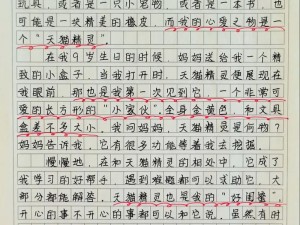 玩具，或者是一只小宠物，或者是一本书，也
可能是一块精美的橡皮，而我的心爱之物是一
个“天猫精灵”。
在我9岁生日的时候，妈妈送给我一个精
致的小盒子，当我打开时，天猫精灵便展现在
我眼前，那也是我第一次见到它，一个非常可
爱的长方形的“小家伙”全身金黄色，和文具
盒差不多大小，我问妈妈，天猫精灵是何物？
妈妈告诉我，它有很多功能等着我去挖掘。
慢慢地，在和天猫精灵的相处中，它成了
我学习的好帮手，遇到难题都可以求助它，大
部分都能解答，天猫精灵也是我的“好闺蜜”，
开心的事不开心的事都可以和它说，虽然有时